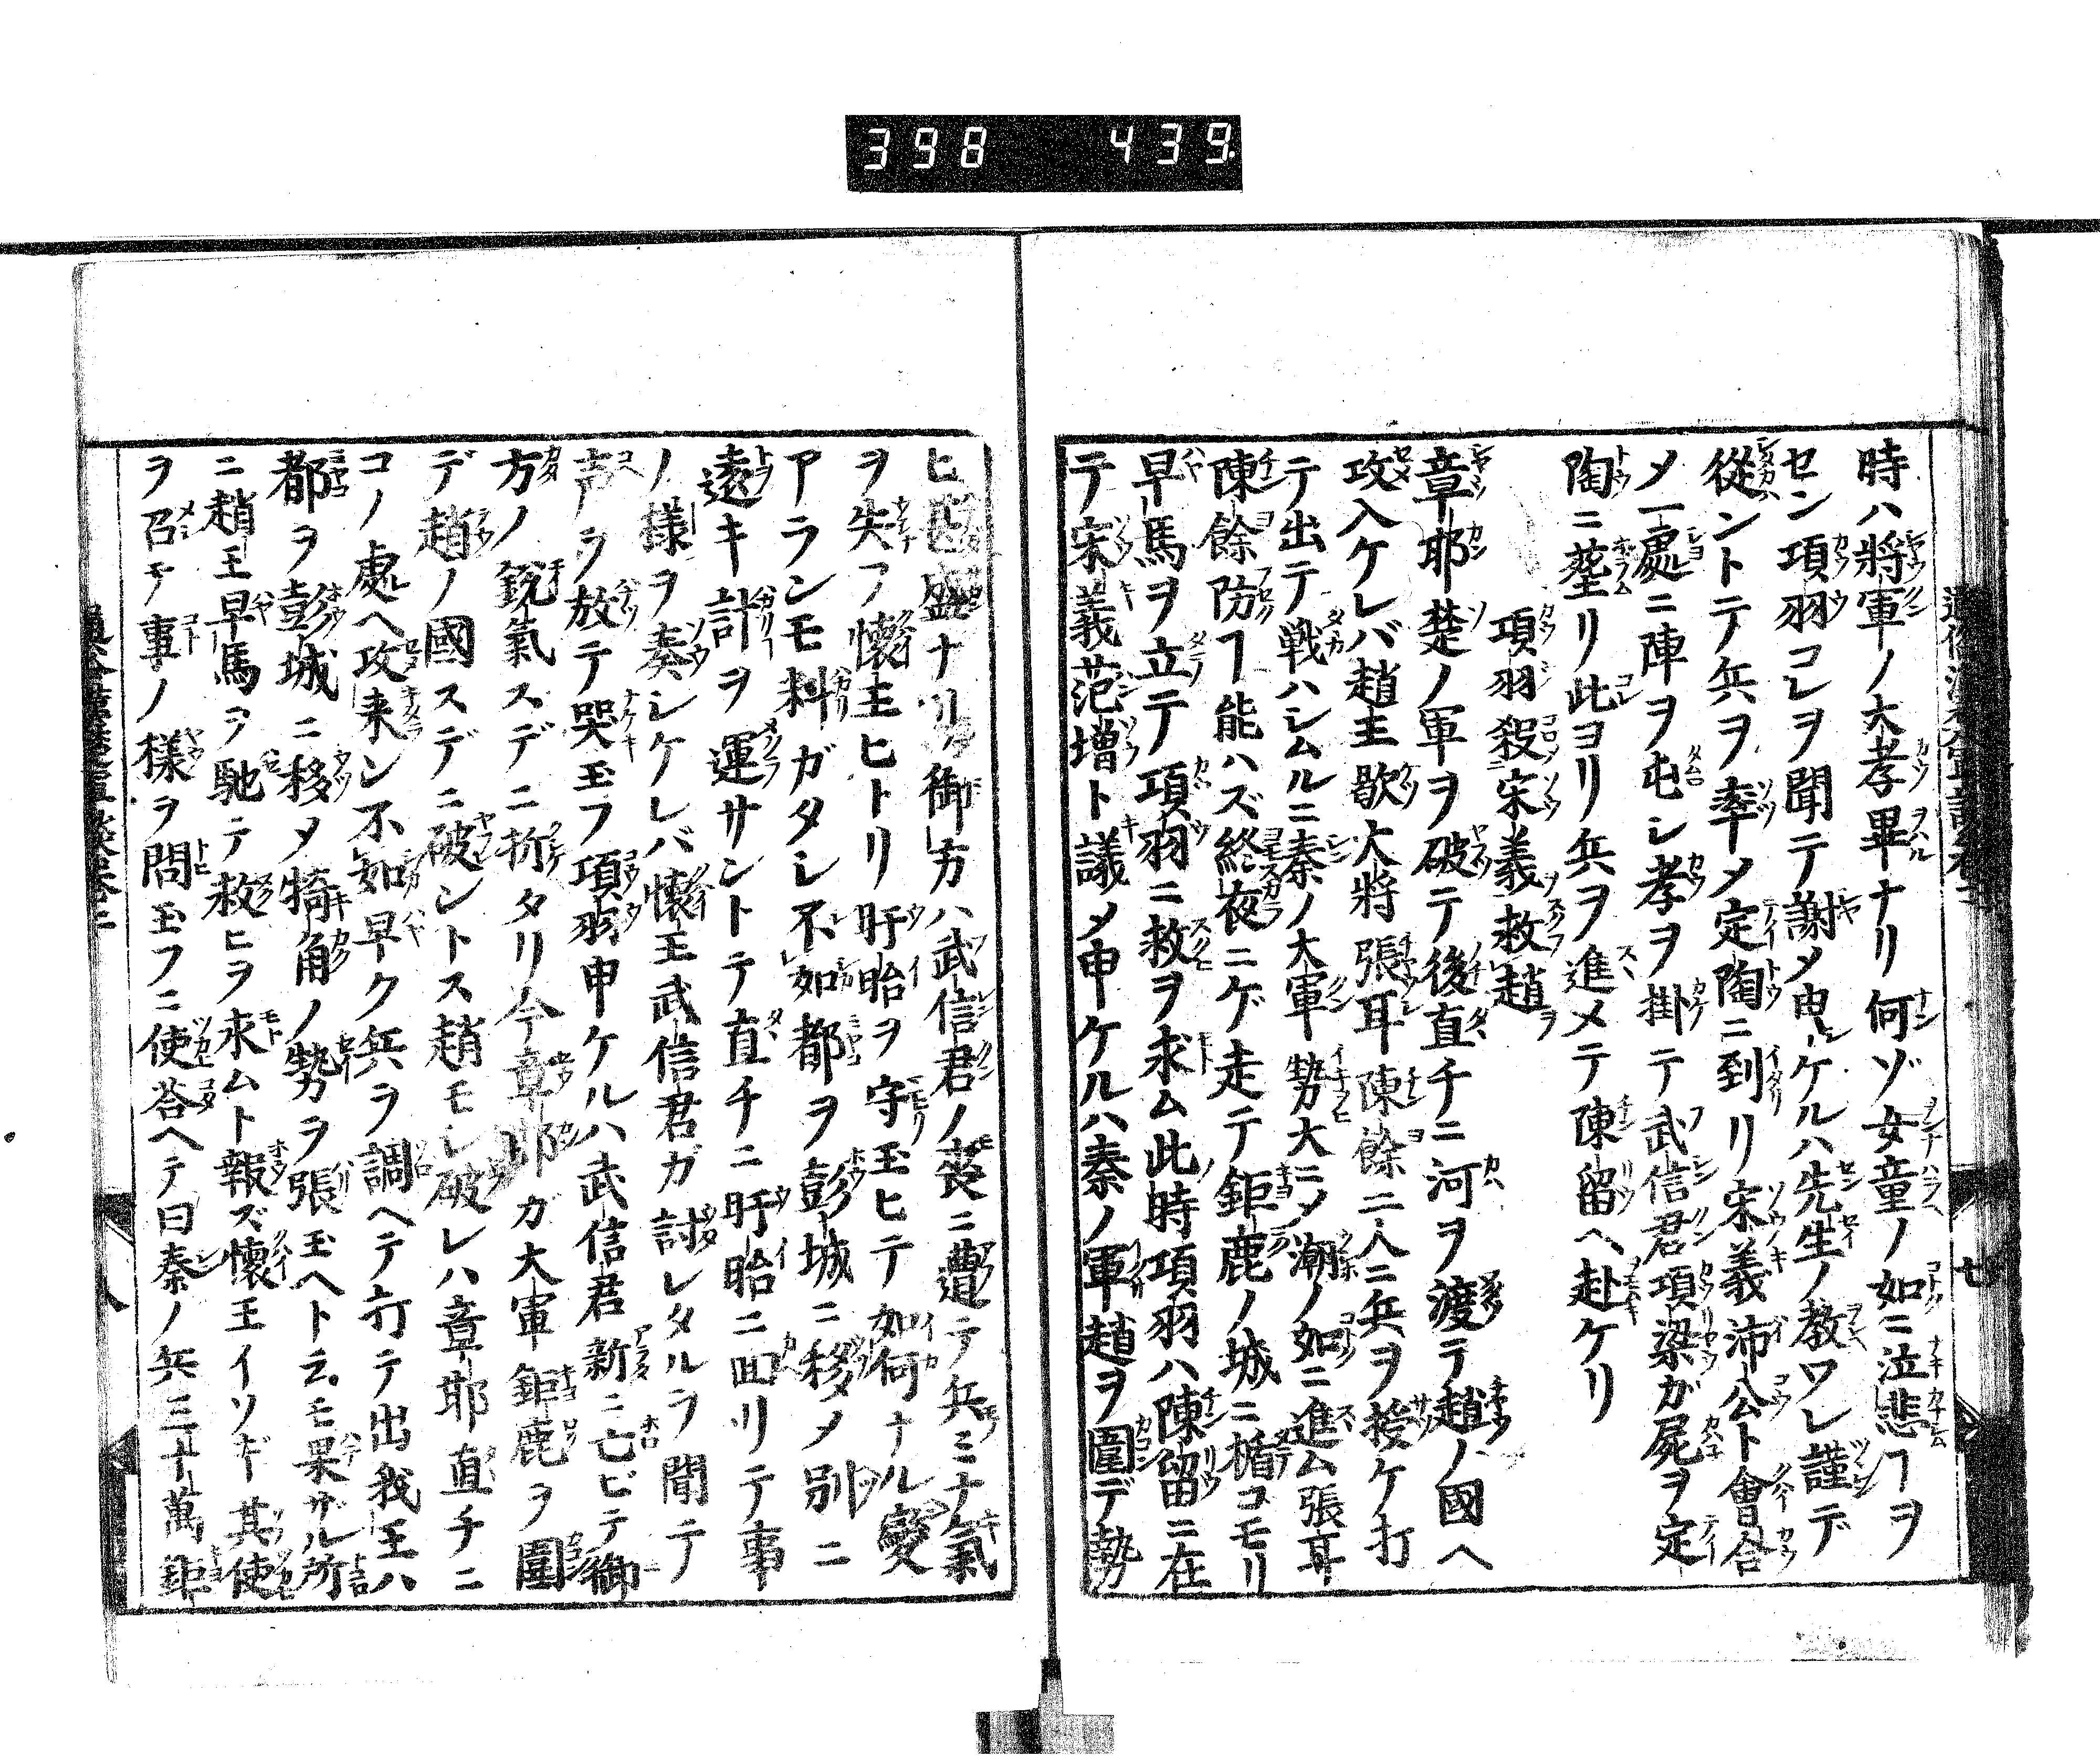 398 439
時ハ將軍ノ大孝畢ナリ何ゾ女童ノ如ニ泣悲ヿヲ
セン項羽コレヲ聞テ謝メ申ケルハ先生ノ教ワレ謹デ
從ントテ兵ヲ率メ定陶ニ到リ宋義沛公ト會合
メ一處ニ陣ヲ屯シ孝ヲ掛テ武信君項梁ガ屍ヲ定
陶ニ葬リ此ヨリ兵ヲ進メテ陳留ヘ赴ケリ
項羽殺宋義救趙
章邯楚ノ軍ヲ破テ後直チニ河ヲ渡テ趙ノ國ヘ
攻入ケレバ趙王歇大將張耳陳餘二人ニ兵ヲ授ケ打
テ出テ戰ハシムルニ秦ノ大軍勢大ニメ潮ノ如ニ進ム張耳
陳餘防ヿ能ハズ終夜ニゲ走テ鉅鹿ノ城ニ楯コモリ
早馬ヲ立テ項羽ニ救ヲ求ム此時項羽ハ陳留ニ在
テ宋義范増ト議メ申ケルハ秦ノ軍趙ヲ圍デ勢
ヒ盛ナリ御方ハ武信君ノ喪ニ遭テ兵ミナ氣
ヲ失フ懷王ヒトリ盱眙ヲ守玉ヒテ如何ナル變
アランモ料ガタレ不如都ヲ彭城ニ移メ別ニ
遠キ計ヲ運サントテ直チニ盱眙ニ囬リテ事
ノ樣ヲ奏シケレバ懷王武信君ガ討レタルヲ聞テ
声ヲ放テ哭玉フ項羽申ケルハ武信君新ニ亡ビテ御
方ノ鋭氣スデニ折タリ今章邯カ大軍鉅鹿ヲ圍
デ趙ノ國スデニ破ントス趙モシ破レハ章邯直チニ
コノ處ヘ攻来ン不如早ク兵ヲ調ヘテ打テ出我王ハ
都ヲ彭城ニ移メ犄角ノ勢ヲ張玉ヘト云モ果ザル所
ニ趙王早馬ヲ馳テ救ヒヲ求ムト報ズ懷王イソギ其使
ヲ召テ事ノ樣ヲ問玉フニ使荅ヘテ曰秦ノ兵三十萬鉅